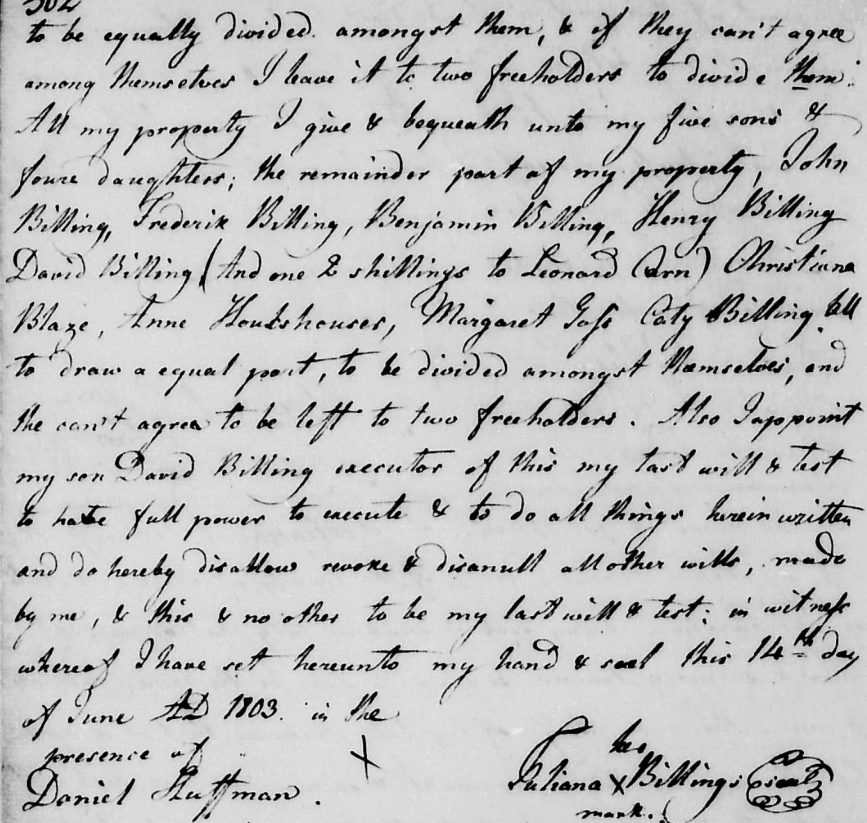 302
to be equally divided. amongst them, & if they can't agree
among themselves I leave it to two freeholders to divide them:
All my property I give & bequeath unto my five sons &
foure daughters; the remainder part of my property, John
Billing, Frederik Billing, Benjamin Billing, Henry Billing
David Billing (And one 2 shillings to Leonard Carn) Christiana
Blaze, Anne Houkshouser, Margaret Gass Caty Billing. All
to draw a equal part, to be divided amongst themselves, and
the can't agree to be left to two freeholders. Also I appoint
my son David Billing executor of this my last will & test
to have full power to execute & to do all things herein written
and do hereby disallow revoke & disanull all other wills, made
by me, & this & no other to be my last will & test: in witness
whereof I have set hereunto my hand & seal this 14th day
of June AD 1803. in the
presence of X her
Daniel Huffman. Juliana X Billings seal
mark.